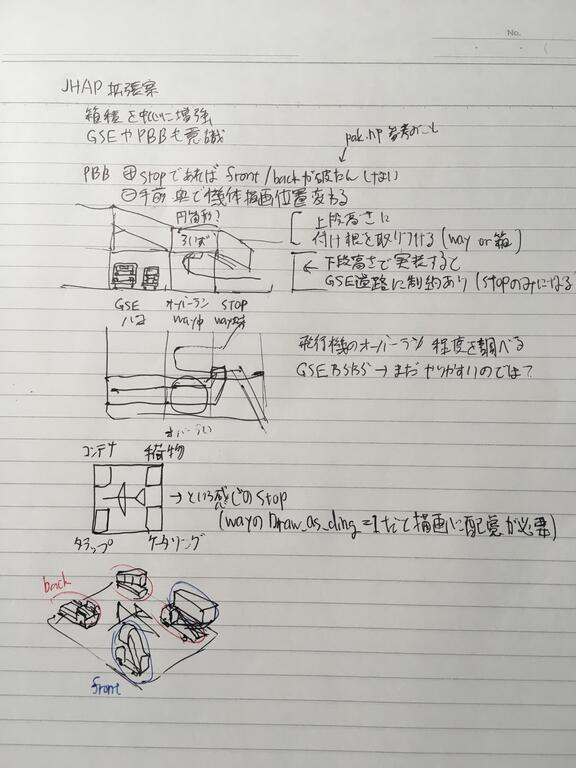 No.
JHAP 拡張案
箱種を中心に増強
GSEやPBBも意識
pak.hp 参考のこと
PBB ⊕stopであれば front/backが破たんしない
⊖手前 奥で機体描画位置変わる
円筒形?
ろいず
上段高さに
付け根を取り付ける (way or 箱)
← 下段高さで実装すると
GSE道路に制約あり (stopのみになる)
GSE オーバーラン STOP
ハコ way中 way端
飛行機のオーバーラン 程度を調べる
GSE ならば → まだ やりやすいのでは?
オーバーラン
コンテナ 荷物
→ という感じの stop
(wayの Draw_as_ding =1 だと 描画に配慮が必要)
タラップ ケータリング
back
front